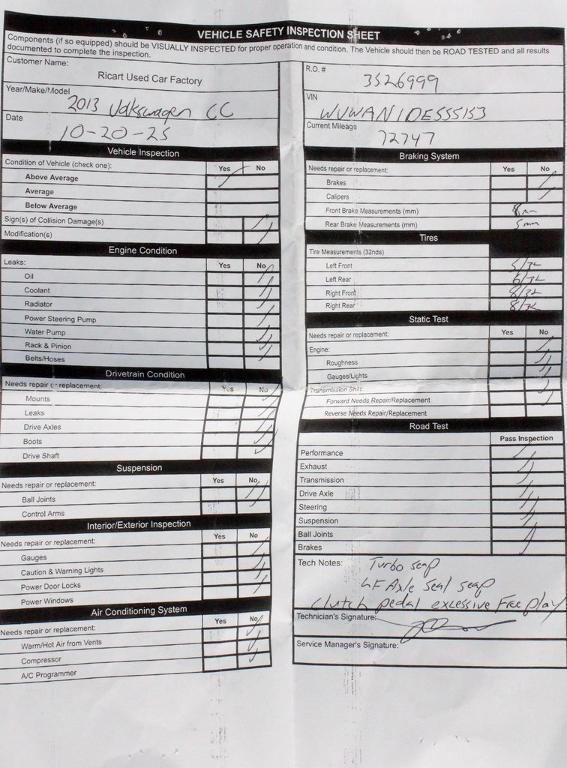 VEHICLE SAFETY INSPECTION SHEET
Components (if so equipped) should be VISUALLY INSPECTED for proper operation and condition. The Vehicle should then be ROAD TESTED and all results
documented to complete the inspection.
Customer Name:
Ricart Used Car Factory
Year/Make/Model
2013 Volkswagen CC
Date
10-20-25
Vehicle Inspection
Condition of Vehicle (check one): Yes No
Above Average
Average
Below Average
Sign(s) of Collision Damage(s)
Modification(s)
Engine Condition
Leaks: Yes No
Oil
Coolant
Radiator
Power Steering Pump
Water Pump
Rack & Pinion
Belts/Hoses
Drivetrain Condition
Needs repair or replacement: Yes No
Mounts
Leaks
Drive Axles
Boots
Drive Shaft
Suspension
Needs repair or replacement: Yes No
Ball Joints
Control Arms
Interior/Exterior Inspection
Needs repair or replacement: Yes No
Gauges
Caution & Warning Lights
Power Door Locks
Power Windows
Air Conditioning System
Needs repair or replacement: Yes No
Warm/Hot Air from Vents
Compressor
A/C Programmer
R.O. #
3526999
VIN
Current Mileage
72747
Braking System
Needs repair or replacement: Yes No
Brakes
Calipers
Front Brake Measurements (mm)
Rear Brake Measurements (mm) 5mm
Tires
Tire Measurements (32nds)
Left Front 5/32
Left Rear 6/32
Right Front 8/32
Right Rear 8/32
Static Test
Needs repair or replacement: Yes No
Engine:
Roughness
Gauges/Lights
Transmission Shift
Forward Needs Repair/Replacement
Reverse Needs Repair/Replacement
Road Test
Pass Inspection
Performance
Exhaust
Transmission
Drive Axle
Steering
Suspension
Ball Joints
Brakes
Tech Notes: Turbo seap
LF Axle seal seap
Clutch pedal excessive Free play
Technician's Signature:
Service Manager's Signature: